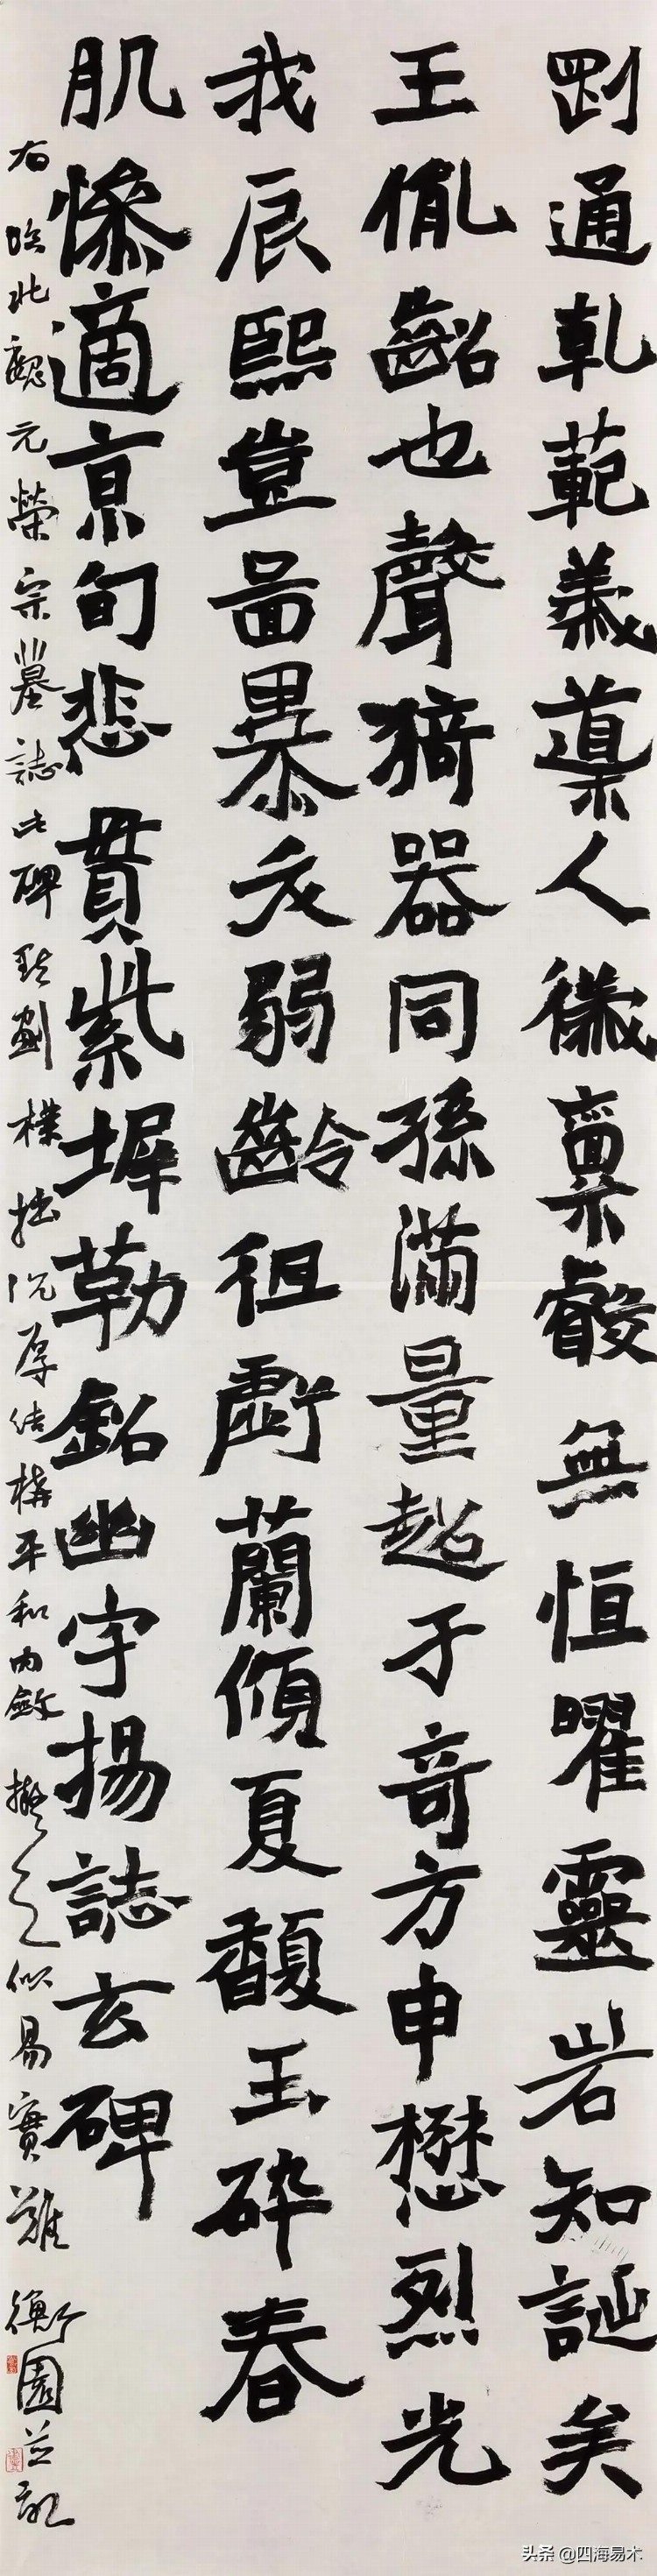 剛通乹範義導人徽禀叡無恒曜靈岩知誕矣
王胤齠也聲猗器同孫滿量超于奇方申懋烈光
我辰熙豈啚暴夭弱齡徂虧蘭傾夏馥玉碎春
肌慘適京甸悲貫紫墀勒銘幽宇揚誌玄碑
右臨北魏元榮宗墓誌此碑點劃樸拙沉厚結構平和內斂擬之似易實難衡園並記
头条 @四海易木